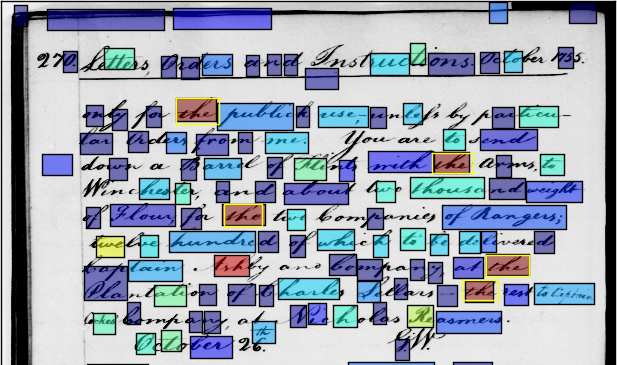 270. Letters, Orders and Instructions. October 1755.
only for the publick use, unless by particu-
lar Orders from me. You are to send
down a Barrel of Flints with the Arms, to
Winchester, and about two thousand weight
of Flour, for the two Companies of Rangers;
twelve hundred of which to be delivered
Captain Ashby and Company, at the
Plantation of Charles Sellars -- the rest to Captain
Cockes Company, at Nicholas Reasmers.
October 26. GW.